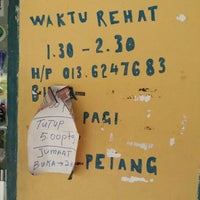 WAKTU REHAT
1.30 - 2.30
H/P 013.6247683
PAGI
TUTUP
5.00ptg
JUMAAT
BUKA→2.
PETANG